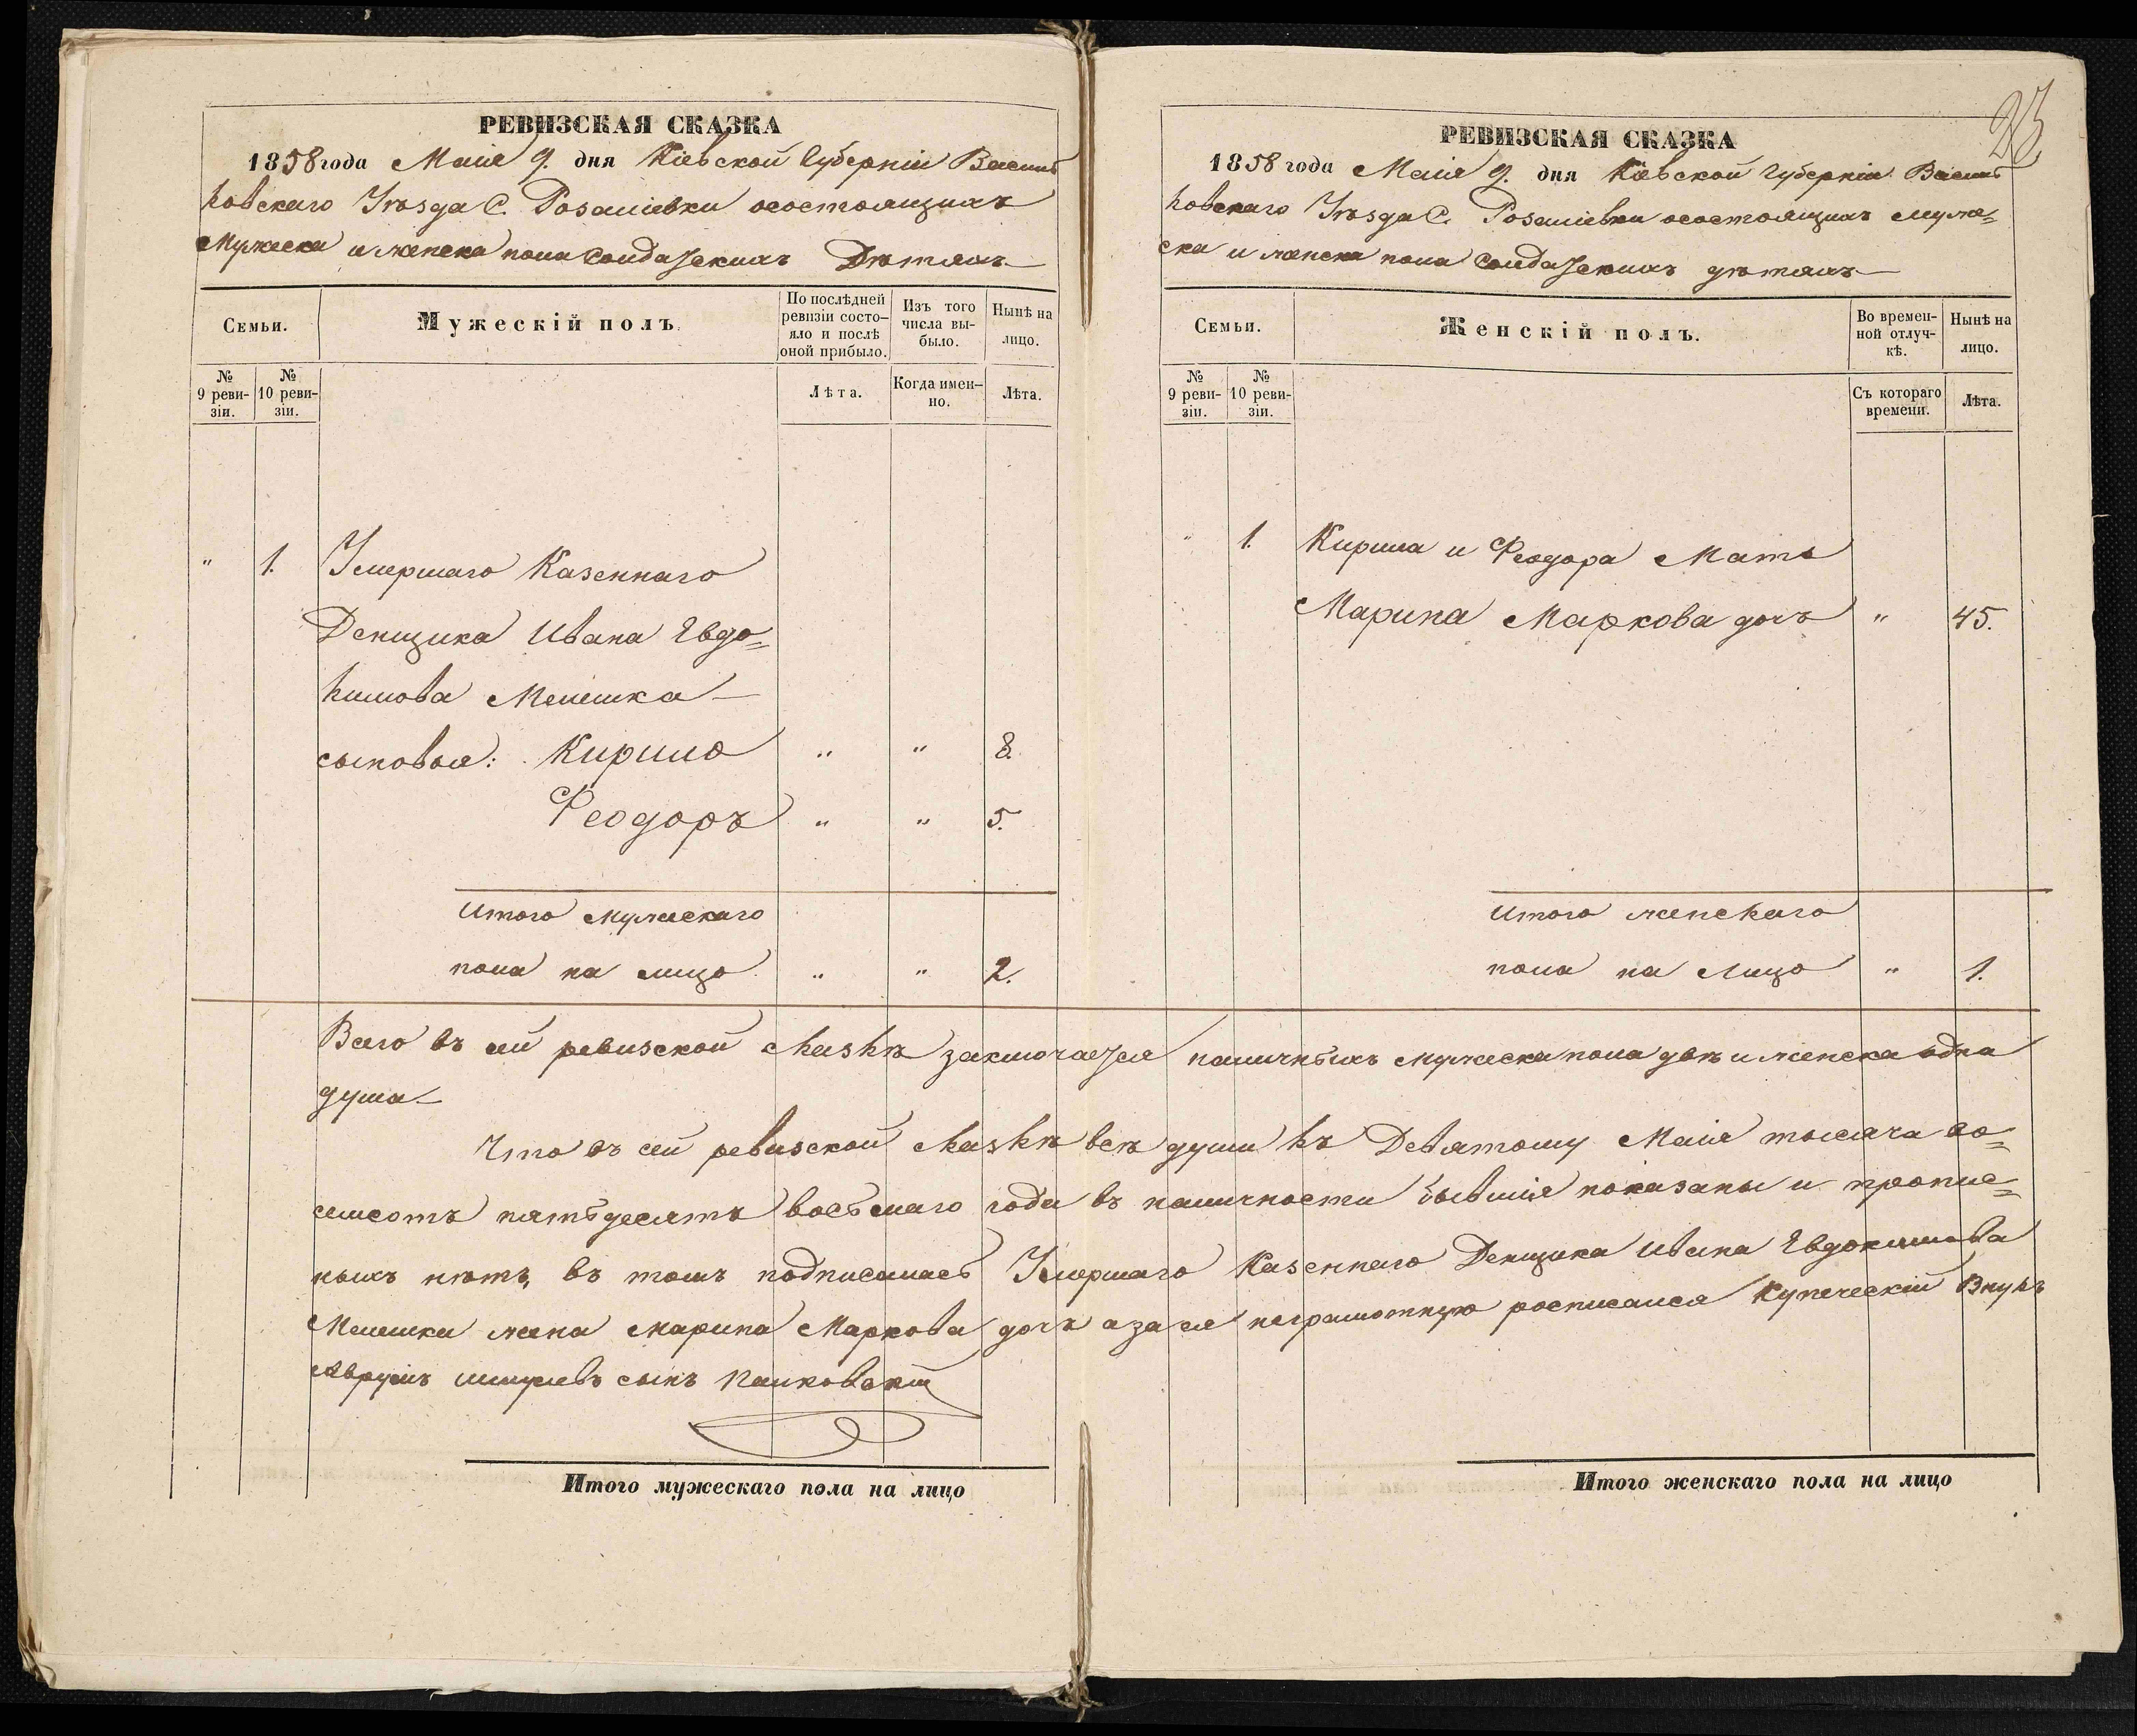 РЕВИЗСКАЯ СКАЗКА
1858 года Маія 9. дня Кіевской Губерніи Василь
ковскаго Уѣзда С. Розаліевки осостоящихъ
Мужеска и женска пола Солдатскихъ Дѣтяхъ
Семьи.
Мужескій полъ.
По послѣдней
ревизіи состо-
яло и послѣ
оной прибыло.
Изъ того
числа вы-
было.
Нынѣ на
лицо.
№
9 реви-
зіи.
№
10 реви-
зіи.
Лѣта.
Когда имен-
но.
Лѣта.
" 1. Умершаго Казеннаго
Денщика Ивана Евдо=
кимова Мелешка
сыновья: Кирило " " 8.
Феодоръ " " 5.
Итого мужескаго
пола на лицо " " 2.
23
РЕВИЗСКАЯ СКАЗКА
1858 года Маія 9. дня Кіевской Губерніи Василь
ковскаго Уѣзда С. Розаліевки осостоящихъ муже=
ска и женска пола Солдатскихъ дѣтяхъ
Семьи.
Женскій полъ.
Во времен-
ной отлуч-
кѣ.
Нынѣ на
лицо.
№
9 реви-
зіи.
№
10 реви-
зіи.
Съ котораго
времени.
Лѣта.
" 1. Кирила и Феодора Мать
Марина Маркова дочь " 45.
Итого женскаго
пола на лицо " 1.
Всего въ сей ревизской сказкѣ заключается наличныхъ мужеска пола двѣ и женска одна
душа
Что въ сей ревизской сказкѣ всѣ души къ Девятому Маія тысяча во=
семсотъ пятьдесятъ восьмаго года въ наличности бывшія показаны и пропис=
ныхъ нѣтъ, въ томъ подписалась Умершаго Казеннаго Денщика Ивана Евдокимова
Мелешки жена Марина Маркова дочь а за ея неграмотную росписался Купеческій Внукъ
Аврумъ Шмулевъ сынъ
Итого мужескаго пола на лицо
Итого женскаго пола на лицо